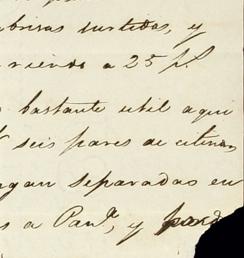 brisas surtidas, y
rriendo a 25 p.s
bastante util aqui
seis pares de
gan separadas en
s a Pan.a, y